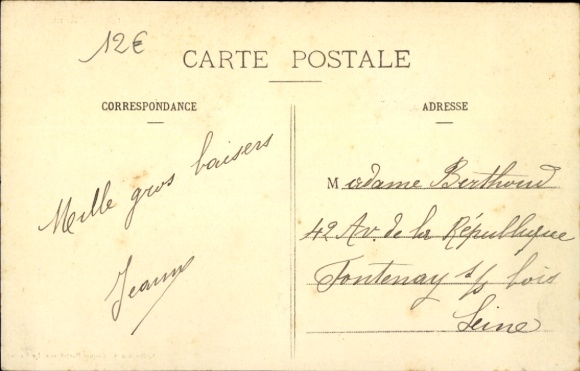 12€
CARTE POSTALE
CORRESPONDANCE
ADRESSE
Mille gros baisers
Jeanne
Madame Berthoud
42 Av. de la République
Fontenay s/s bois
Seine